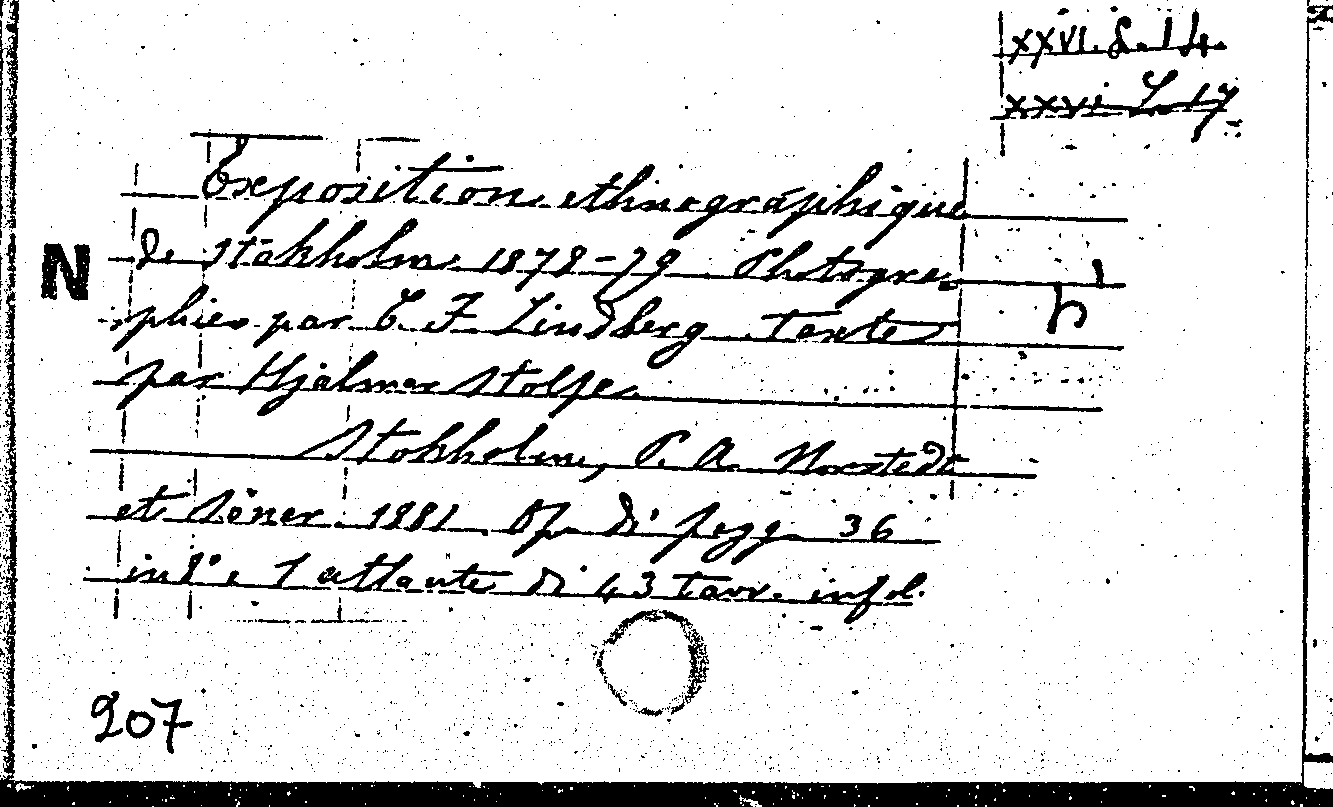 XXVI. L. 14.
XXVI L. 17
Exposition ethnographique
N
de Stokholm 1878-79 Photogra-
phies par C. F. Lindberg Texte
par Hjalmar Stolpe
Stokholm, P. A. Norstedt
et Söner 1881 Op. di pagg. 36
in 8° e 1 atlante di 43 tavv. in fol.
207